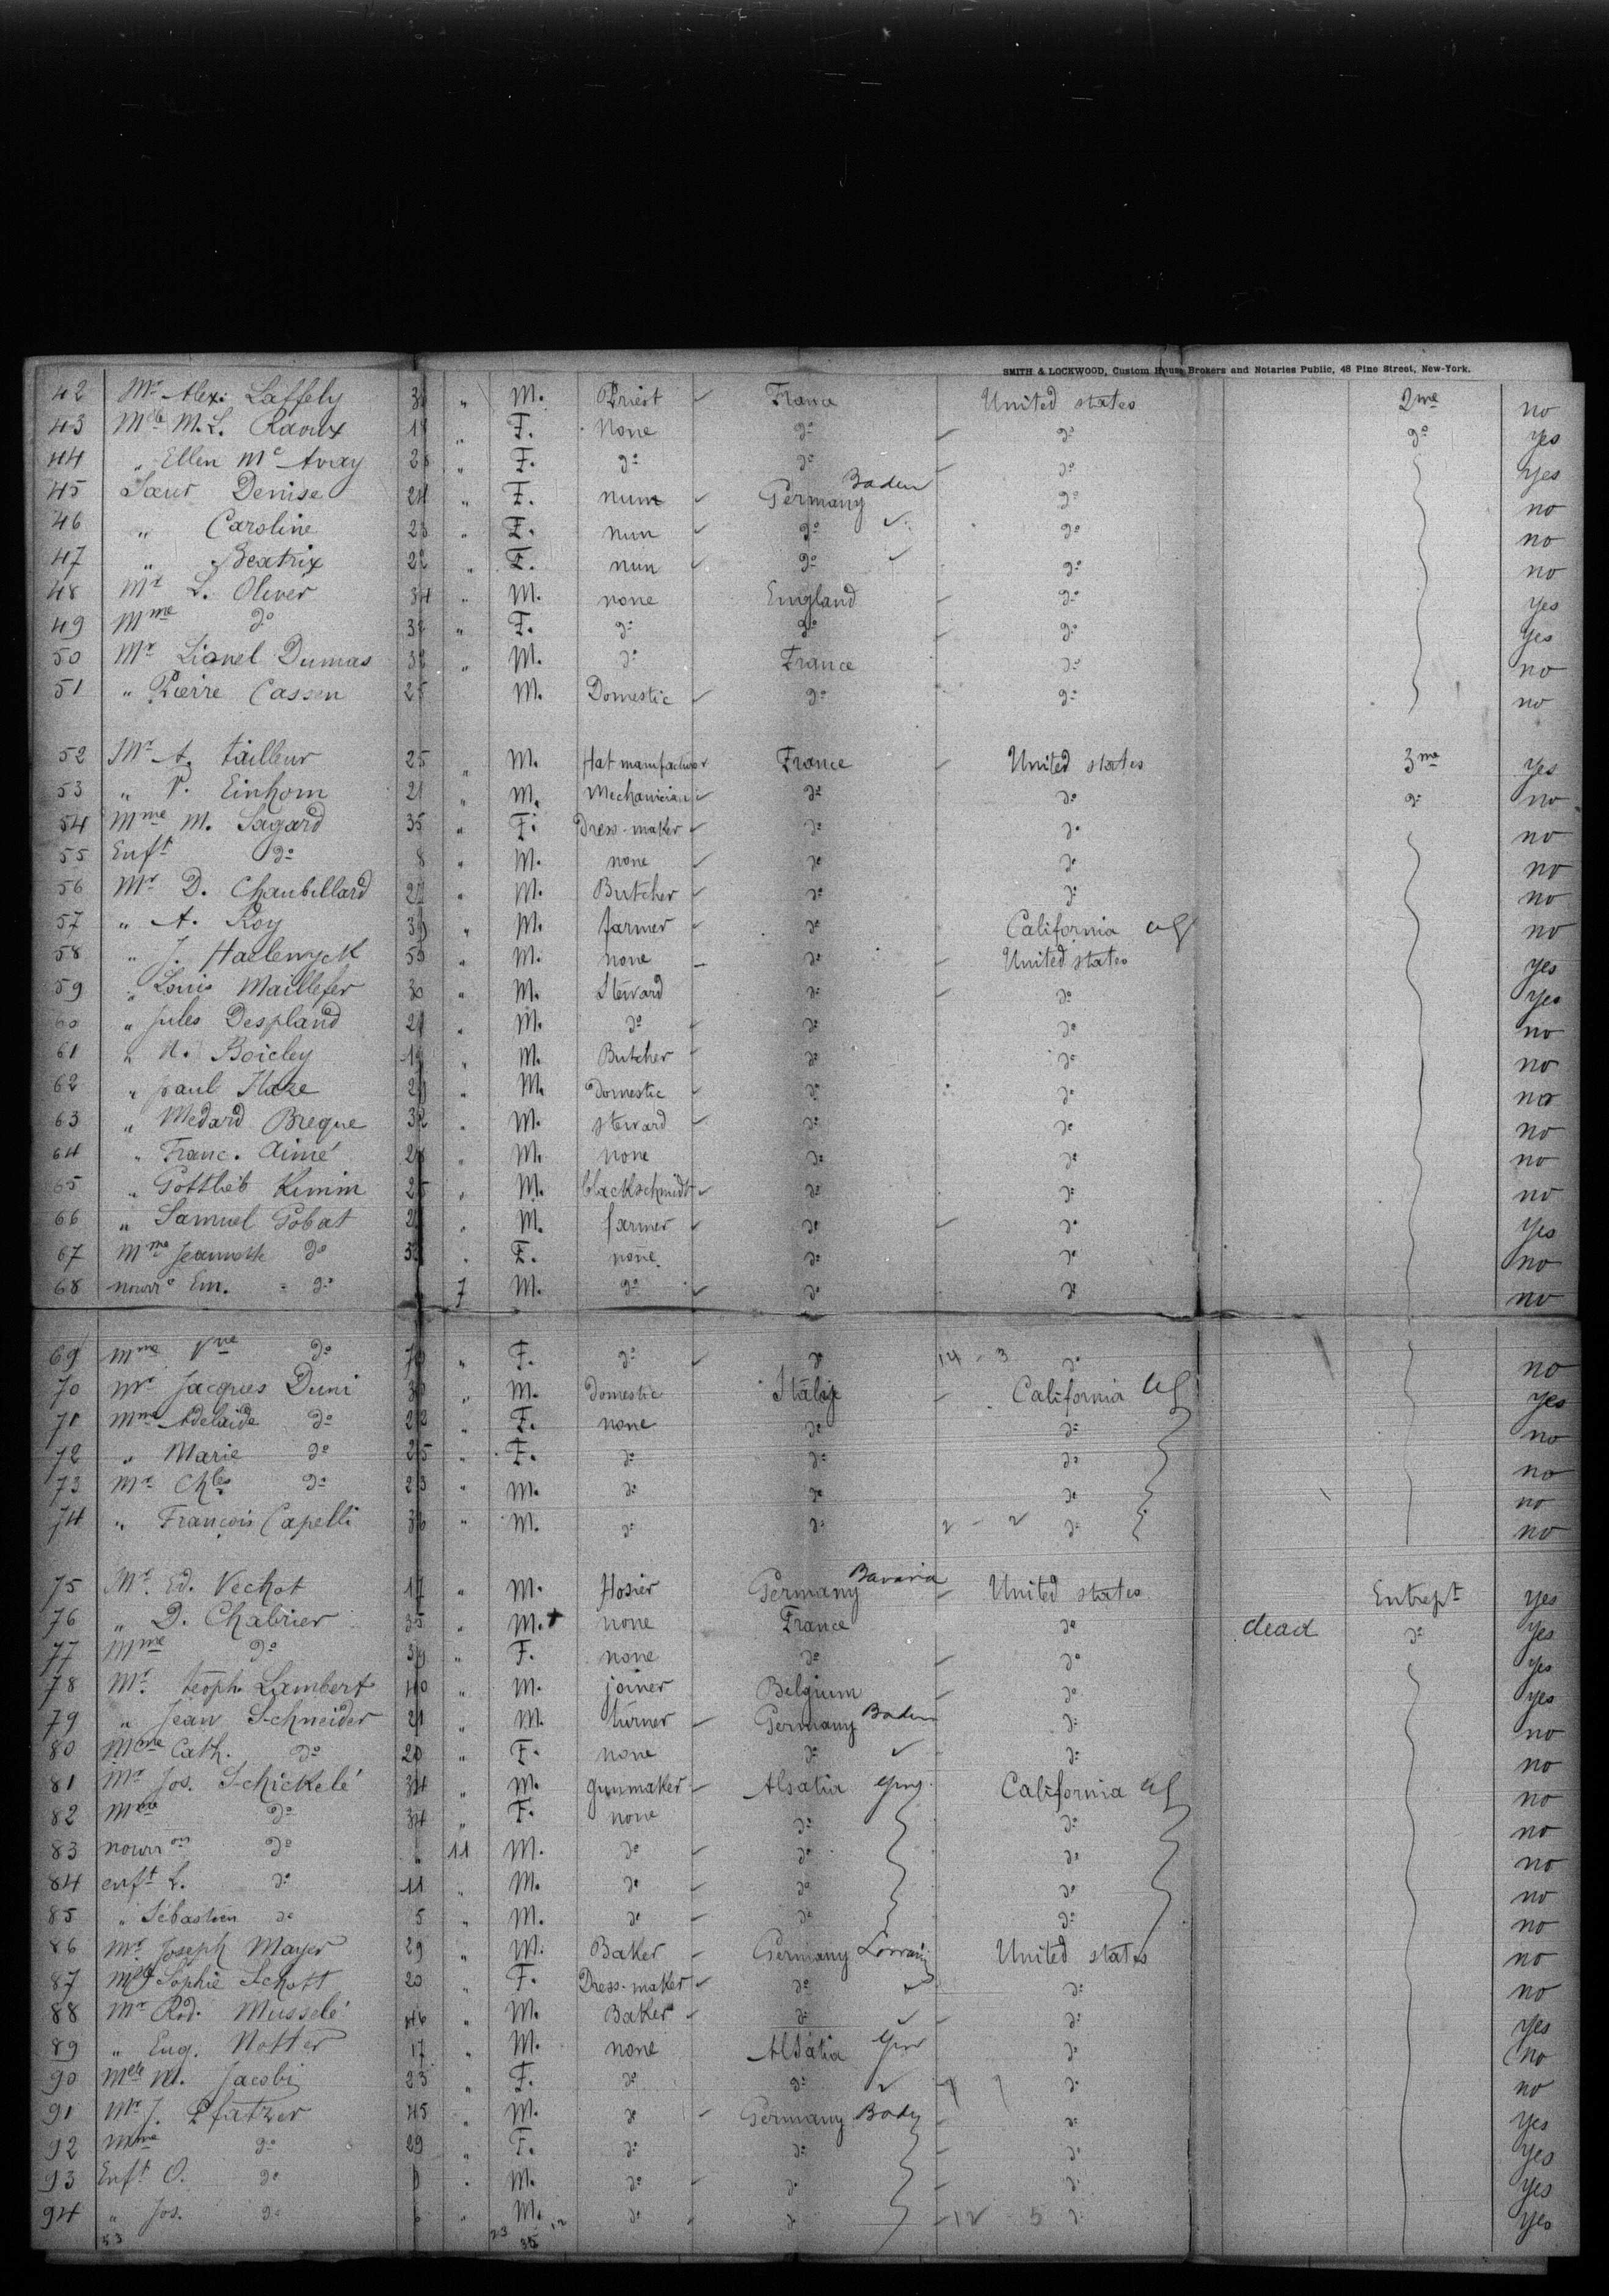 SMITH & LOCKWOOD, Custom House Brokers and Notaries Public, 48 Pine Street, New-York.
42 Mr Alex. Laffely " M. Priest France United states 2me no
43 Melle M.L. Raoux " F. None do do do yes
44 " Ellen Mc Avay " F. do do do yes
45 Sœur Denise 24 " F. nun Germany Baden do no
46 " Caroline 23 " F. nun do do no
47 " Beatrix 22 " F. nun do do no
48 Mr L. Oliver 34 " M. none England do yes
49 Mme do 32 " F. do do do yes
50 Mr Lionel Dumas 38 " M. do France do no
51 " Pierre Cassen 25 M. Domestic do do no
52 Mr A. tailleur 25 " M. Hat manufactuor France United states 3me yes
53 " P. Einhorn 21 " M. Mechanician do do do no
54 Mme M. Sagard 35 " F. Dress-maker do do no
55 Enft do 8 " M. none do do no
56 Mr D. Chaubillard " M. Butcher do do no
57 " A. Roy " M. farmer do California no
58 " J. Haelewyck " M. none do United states yes
59 " Louis Maillefer 30 " M. Steward do do yes
60 " Jules Despland " M. do do do no
61 " N. Boicley " M. Butcher do do no
62 " paul Haze " M. Domestic do do no
63 " Medard Breque 32 " M. steward do do no
64 " Franc. Aimé " M. none do do no
65 " Gottlieb Kimm 25 " M. blackschmidt do do no
66 " Samuel Gobat " M. farmer do do yes
67 Mme Jeannette do " F. none do do no
68 nourr Em. do 7 M. do do do no
69 Mme Vve do " F. do do 14 - 3 do no
70 Mr Jacques Duni 30 " M. domestic Italy California yes
71 Mme Adelaide do 22 " F. none do do no
72 " Marie do 25 " F. do do do no
73 Mr Chles do 23 " M. do do do no
74 " François Capelli 36 " M. do do 2 - 2 do no
75 Mr Ed. Vechot 17 " M. Hosier Germany Bavaria United states Entrept yes
76 " D. Chabrier 35 " M. + none France do dead do yes
77 Mme do " F. none do do yes
78 Mr teoph. Lambert 40 " M. joiner Belgium do yes
79 " Jean Schneider 21 " M. turner Germany Baden do no
80 Mme Cath. do 20 " F. none do do no
81 Mr Jos. Schickelé 34 " M. gunmaker Alsatia Gmy California no
82 Mme do 34 " F. none do do no
83 nourron do " 11 M. do do do no
84 enft L. do 11 " M. do do do no
85 " Sébastien do 5 " M. do do do no
86 Mr Joseph Mayer 29 " M. Baker Germany Lorrain United states no
87 Melle Sophie Schott 20 " F. Dress-maker do do no
88 Mr Rod. Musselé 46 " M. Baker do do yes
89 " Eug. Notter 17 " M. none Alsatia do no
90 Melle M. Jacobi 23 " F. do do do no
91 Mr J. Pfatzer 45 " M. do Germany do yes
92 Mme do 29 " F. do do do yes
93 Enft O. do " M. do do do yes
94 " Jos. do " M. do do 12 5 do yes
53 23 35 12